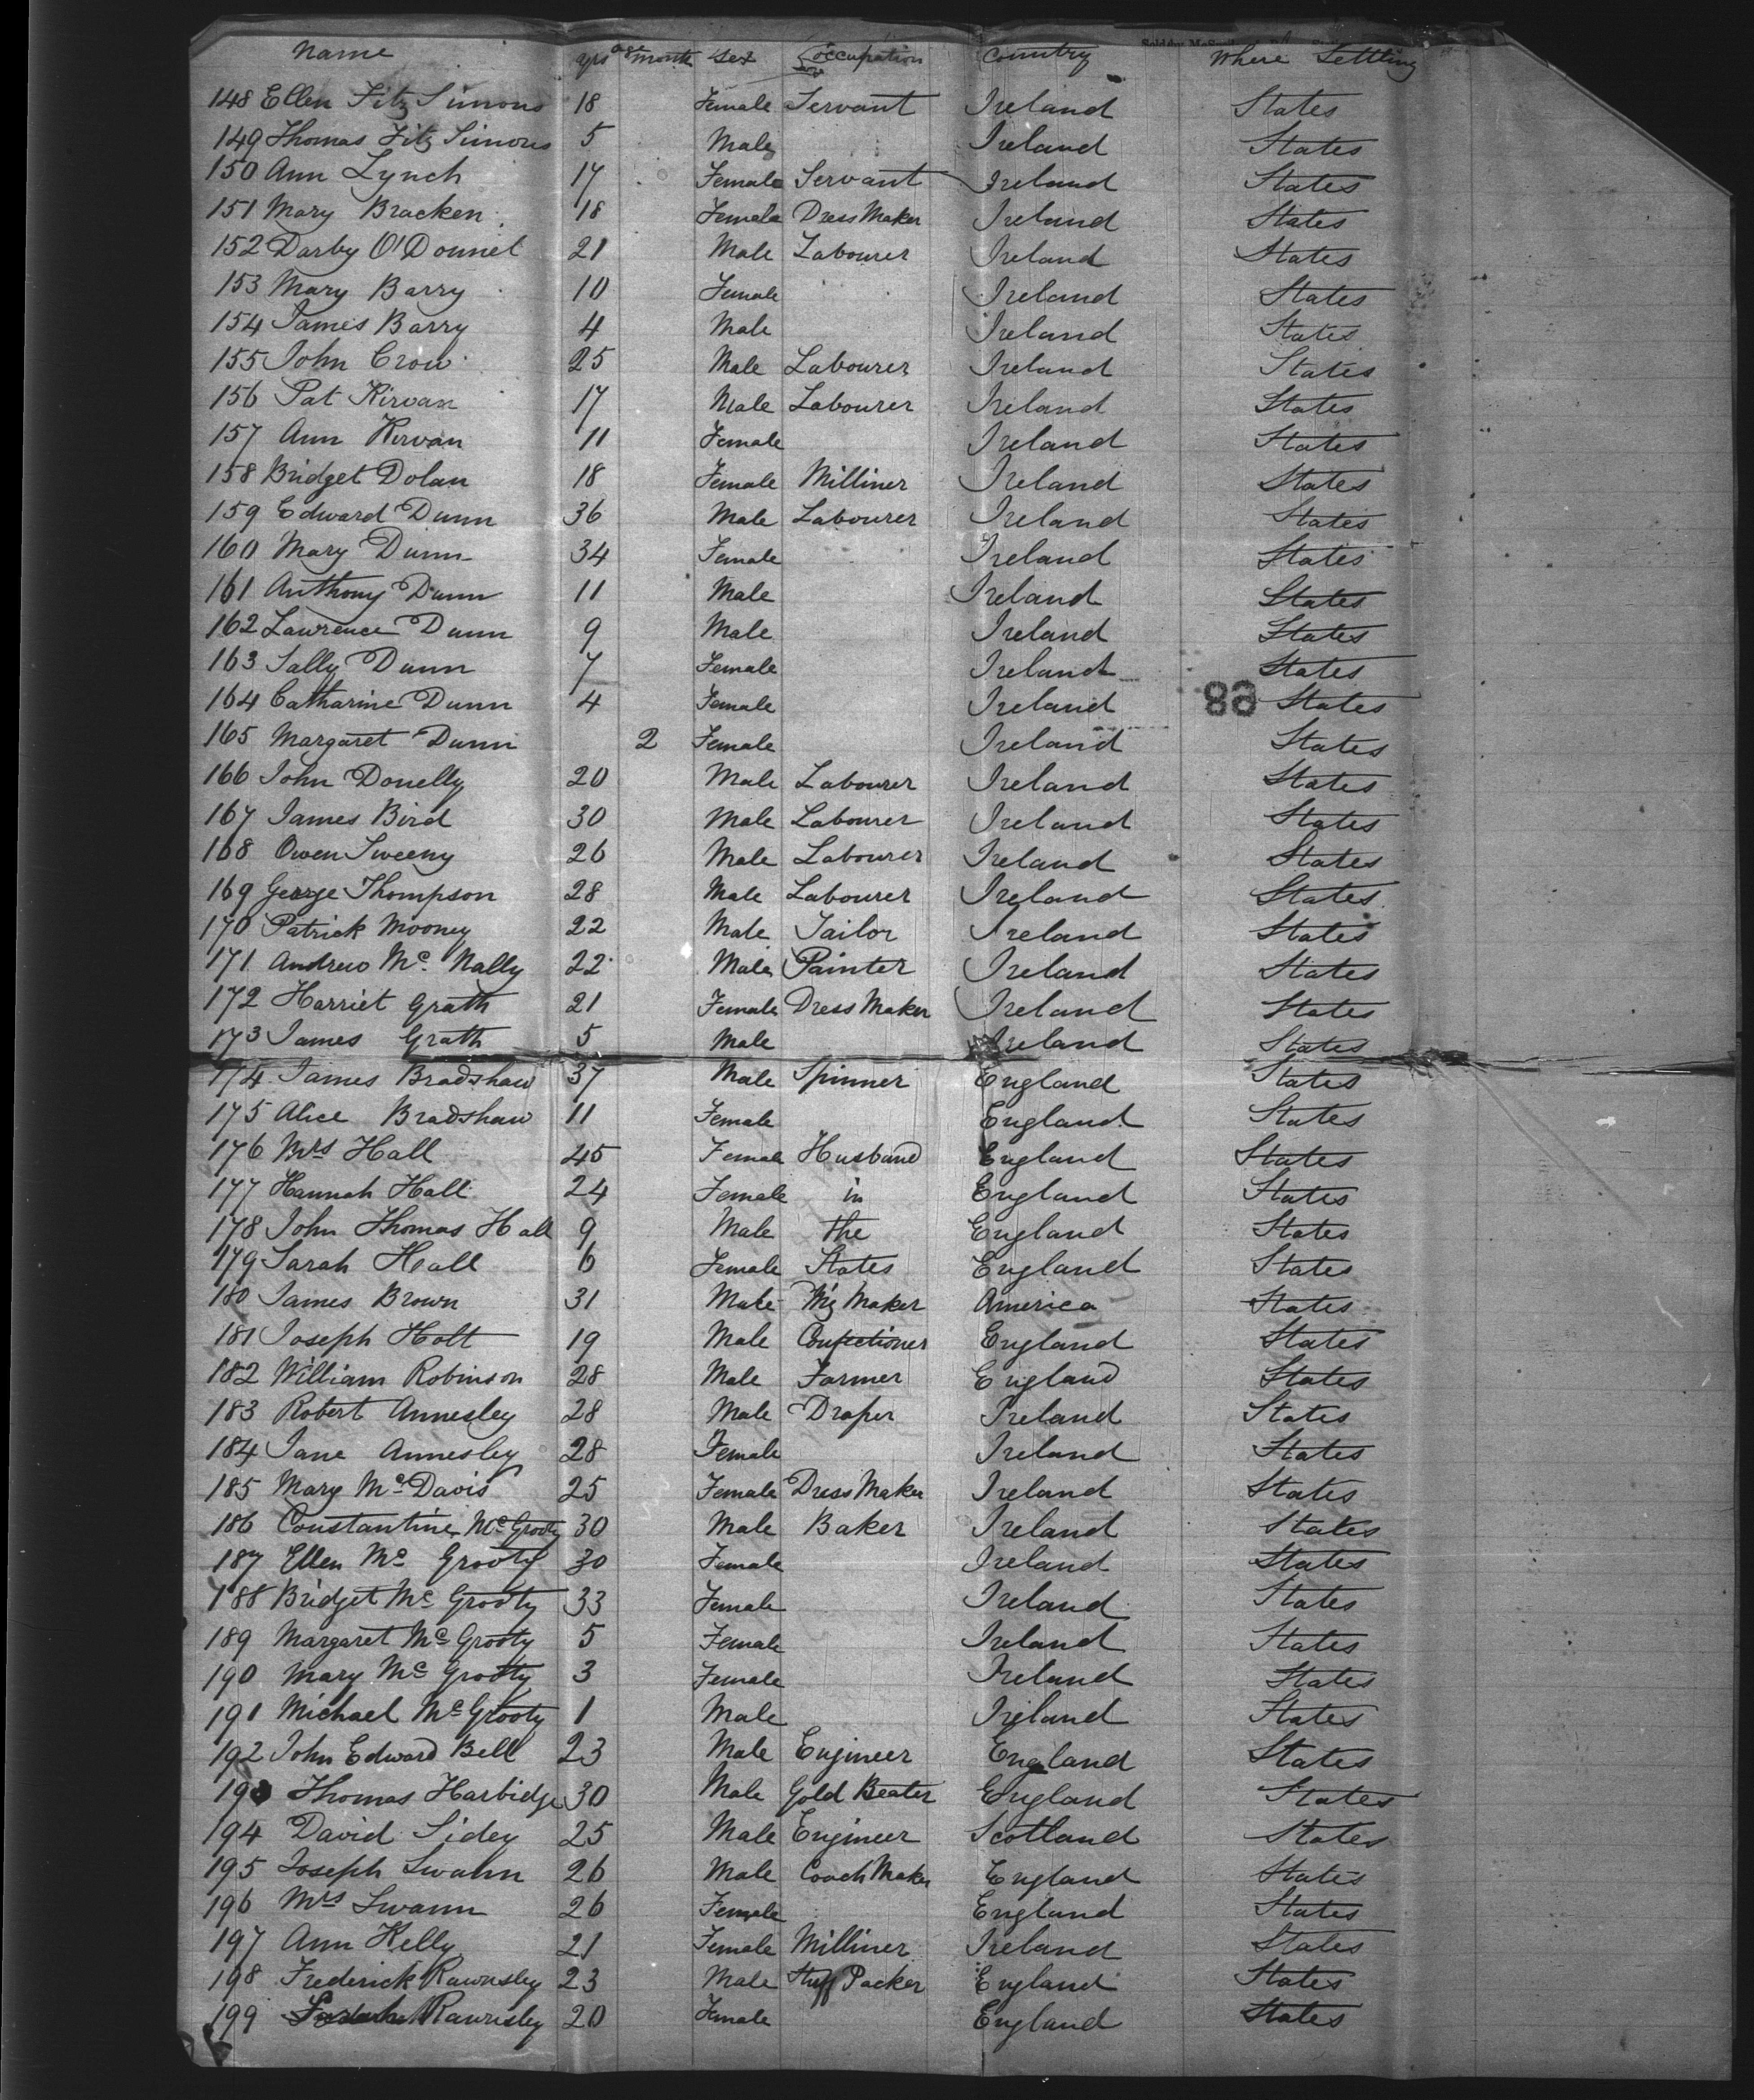 Name yrs age month Sex Occupation Country Where Settling
148 Ellen Fitz Simons 18 Female Servant Ireland States
149 Thomas Fitz Simons 5 Male Ireland States
150 Ann Lynch 17 Female Servant Ireland States
151 Mary Bracken 18 Female Dress Maker Ireland States
152 Darby O'Donnel 21 Male Labourer Ireland States
153 Mary Barry 10 Female Ireland States
154 James Barry 4 Male Ireland States
155 John Crow 25 Male Labourer Ireland States
156 Pat Kirvan 17 Male Labourer Ireland States
157 Ann Kirvan 11 Female Ireland States
158 Bridget Dolan 18 Female Milliner Ireland States
159 Edward Dunn 36 Male Labourer Ireland States
160 Mary Dunn 34 Female Ireland States
161 Anthony Dunn 11 Male Ireland States
162 Lawrence Dunn 9 Male Ireland States
163 Sally Dunn 7 Female Ireland States
164 Catharine Dunn 4 Female Ireland States
165 Margaret Dunn 2 Female Ireland States
166 John Donelly 20 Male Labourer Ireland States
167 James Bird 30 Male Labourer Ireland States
168 Owen Sweeny 26 Male Labourer Ireland States
169 George Thompson 28 Male Labourer Ireland States
170 Patrick Mooney 22 Male Tailor Ireland States
171 Andrew Mc Nally 22 Male Painter Ireland States
172 Harriet Grath 21 Female Dress Maker Ireland States
173 James Grath 5 Male Ireland States
174 James Bradshaw 37 Male Spinner England States
175 Alice Bradshaw 11 Female England States
176 Mrs Hall 45 Female Husband England States
177 Hannah Hall 24 Female in England States
178 John Thomas Hall 9 Male the England States
179 Sarah Hall 6 Female States England States
180 James Brown 31 Male Wig Maker America States
181 Joseph Holt 19 Male Confectioner England States
182 William Robinson 28 Male Farmer England States
183 Robert Annesley 28 Male Draper Ireland States
184 Jane Annesley 28 Female Ireland States
185 Mary Mc Davis 25 Female Dress Maker Ireland States
186 Constantine Mc Grooty 30 Male Baker Ireland States
187 Ellen Mc Grooty 30 Female Ireland States
188 Bridget Mc Grooty 33 Female Ireland States
189 Margaret Mc Grooty 5 Female Ireland States
190 Mary Mc Grooty 3 Female Ireland States
191 Michael Mc Grooty 1 Male Ireland States
192 John Edward Bell 23 Male Engineer England States
193 Thomas Harbidge 30 Male Gold Beater England States
194 David Sidey 25 Male Engineer Scotland States
195 Joseph Swann 26 Male Coach Maker England States
196 Mrs Swann 26 Female England States
197 Ann Kelly 21 Female Milliner Ireland States
198 Frederick Rawnsley 23 Male Stuff Packer England States
199 Rawnsley 20 Female England States